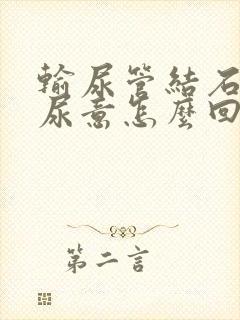 輸尿管結石
尿意怎麼回
第二言